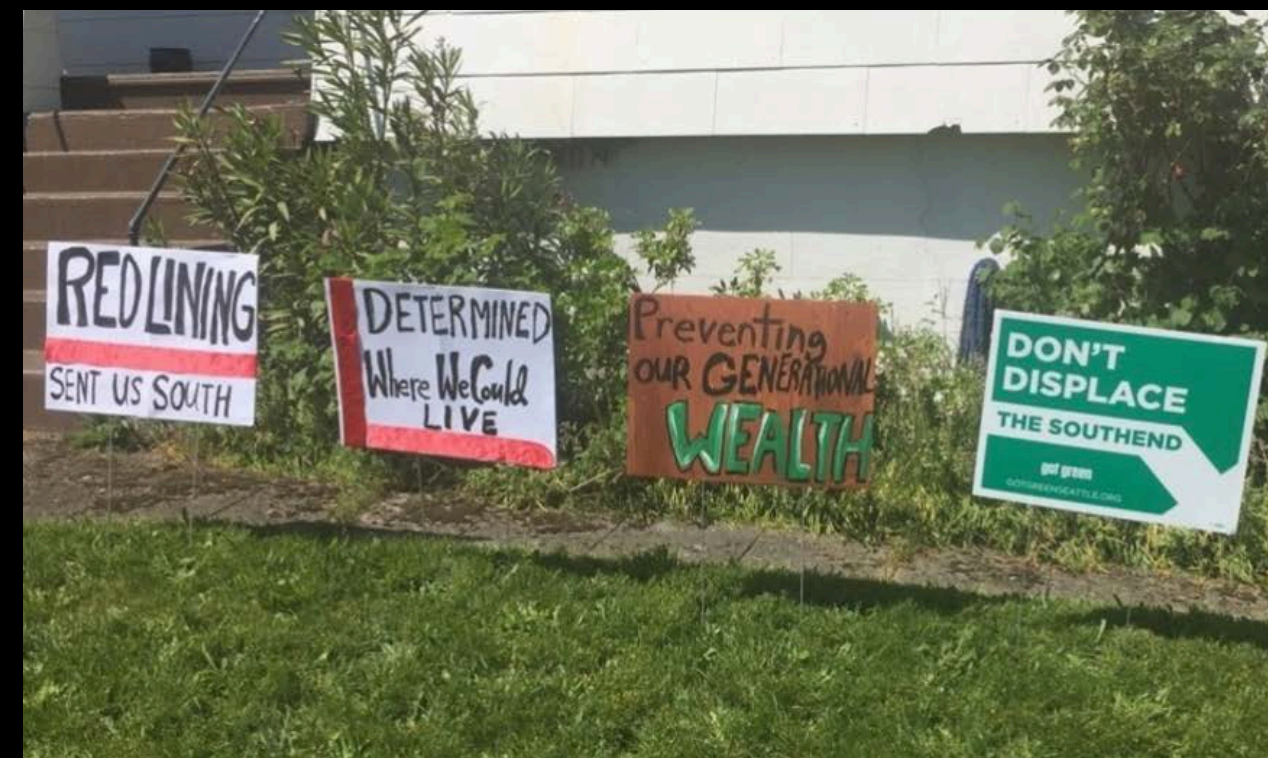 REDLINING
SENT US SOUTH
DETERMINED
Where We Could
LIVE
Preventing
OUR GENERATIONAL
WEALTH
DON'T
DISPLACE
THE SOUTHEND
got green
GOTGREENSEATTLE.ORG